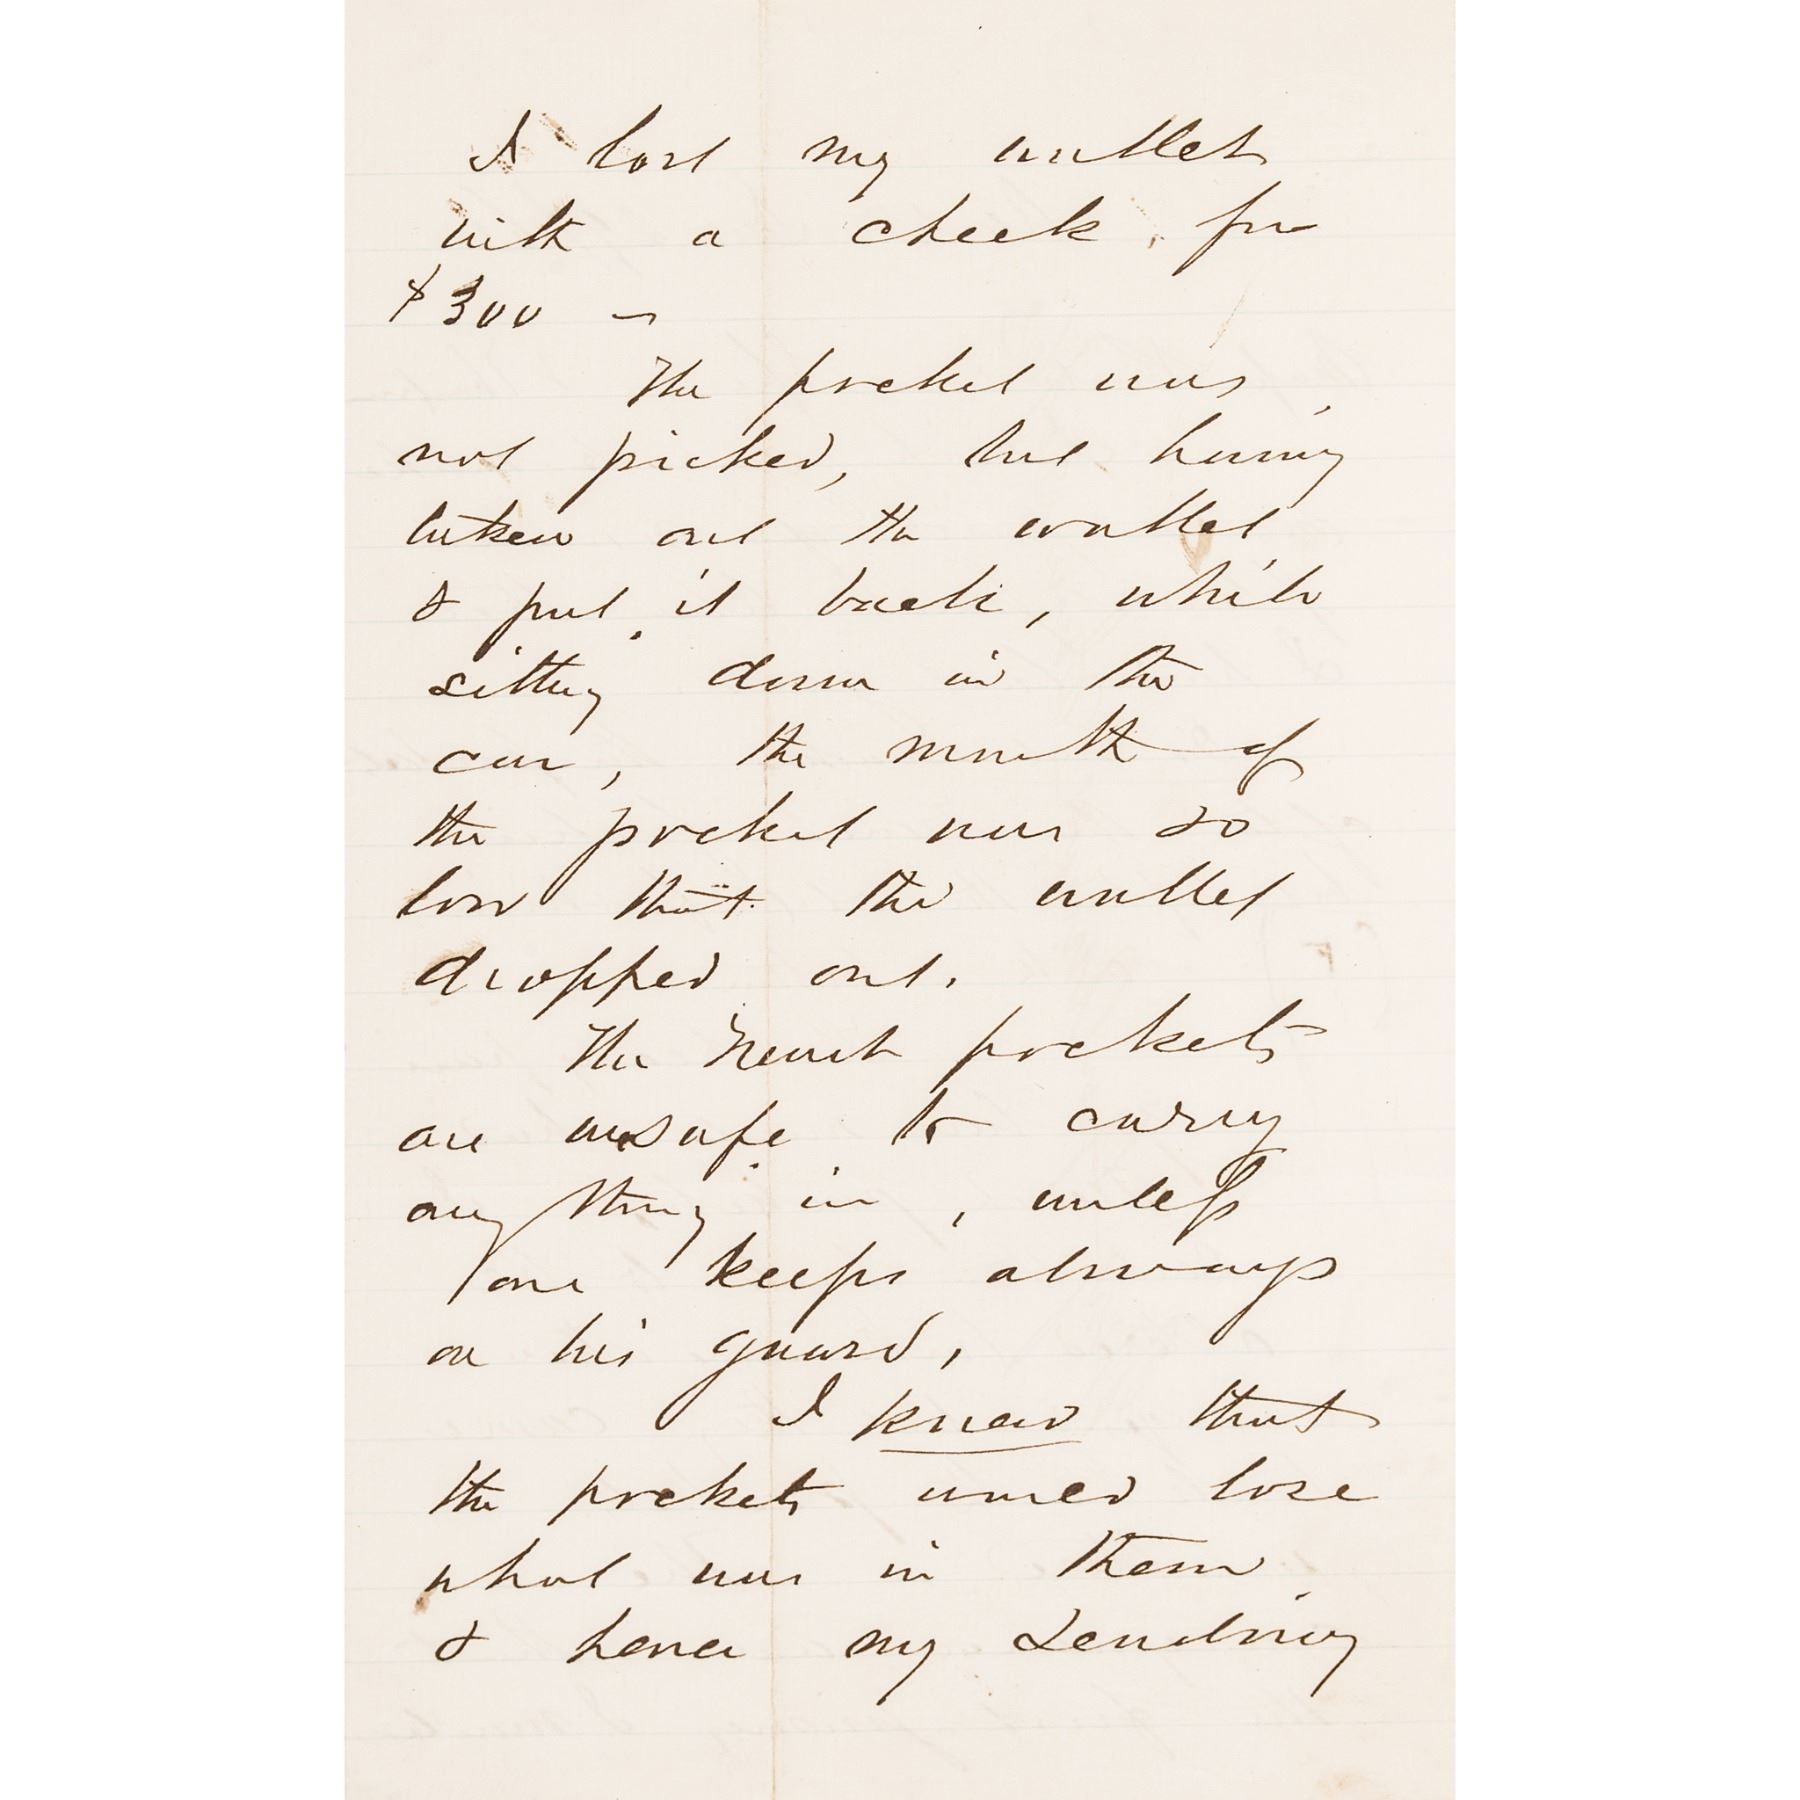 I lost my wallet
with a check for
$300 –
The pocket was
not picked, but having
taken out the wallet
& put it back, while
sitting down in the
car, the mouth of
the pocket was so
low that the wallet
dropped out.
The pockets
are unsafe to carry
any thing in, unless
one keeps always
on his guard,
I knew that
the pockets would lose
what was in them
& hence my sending